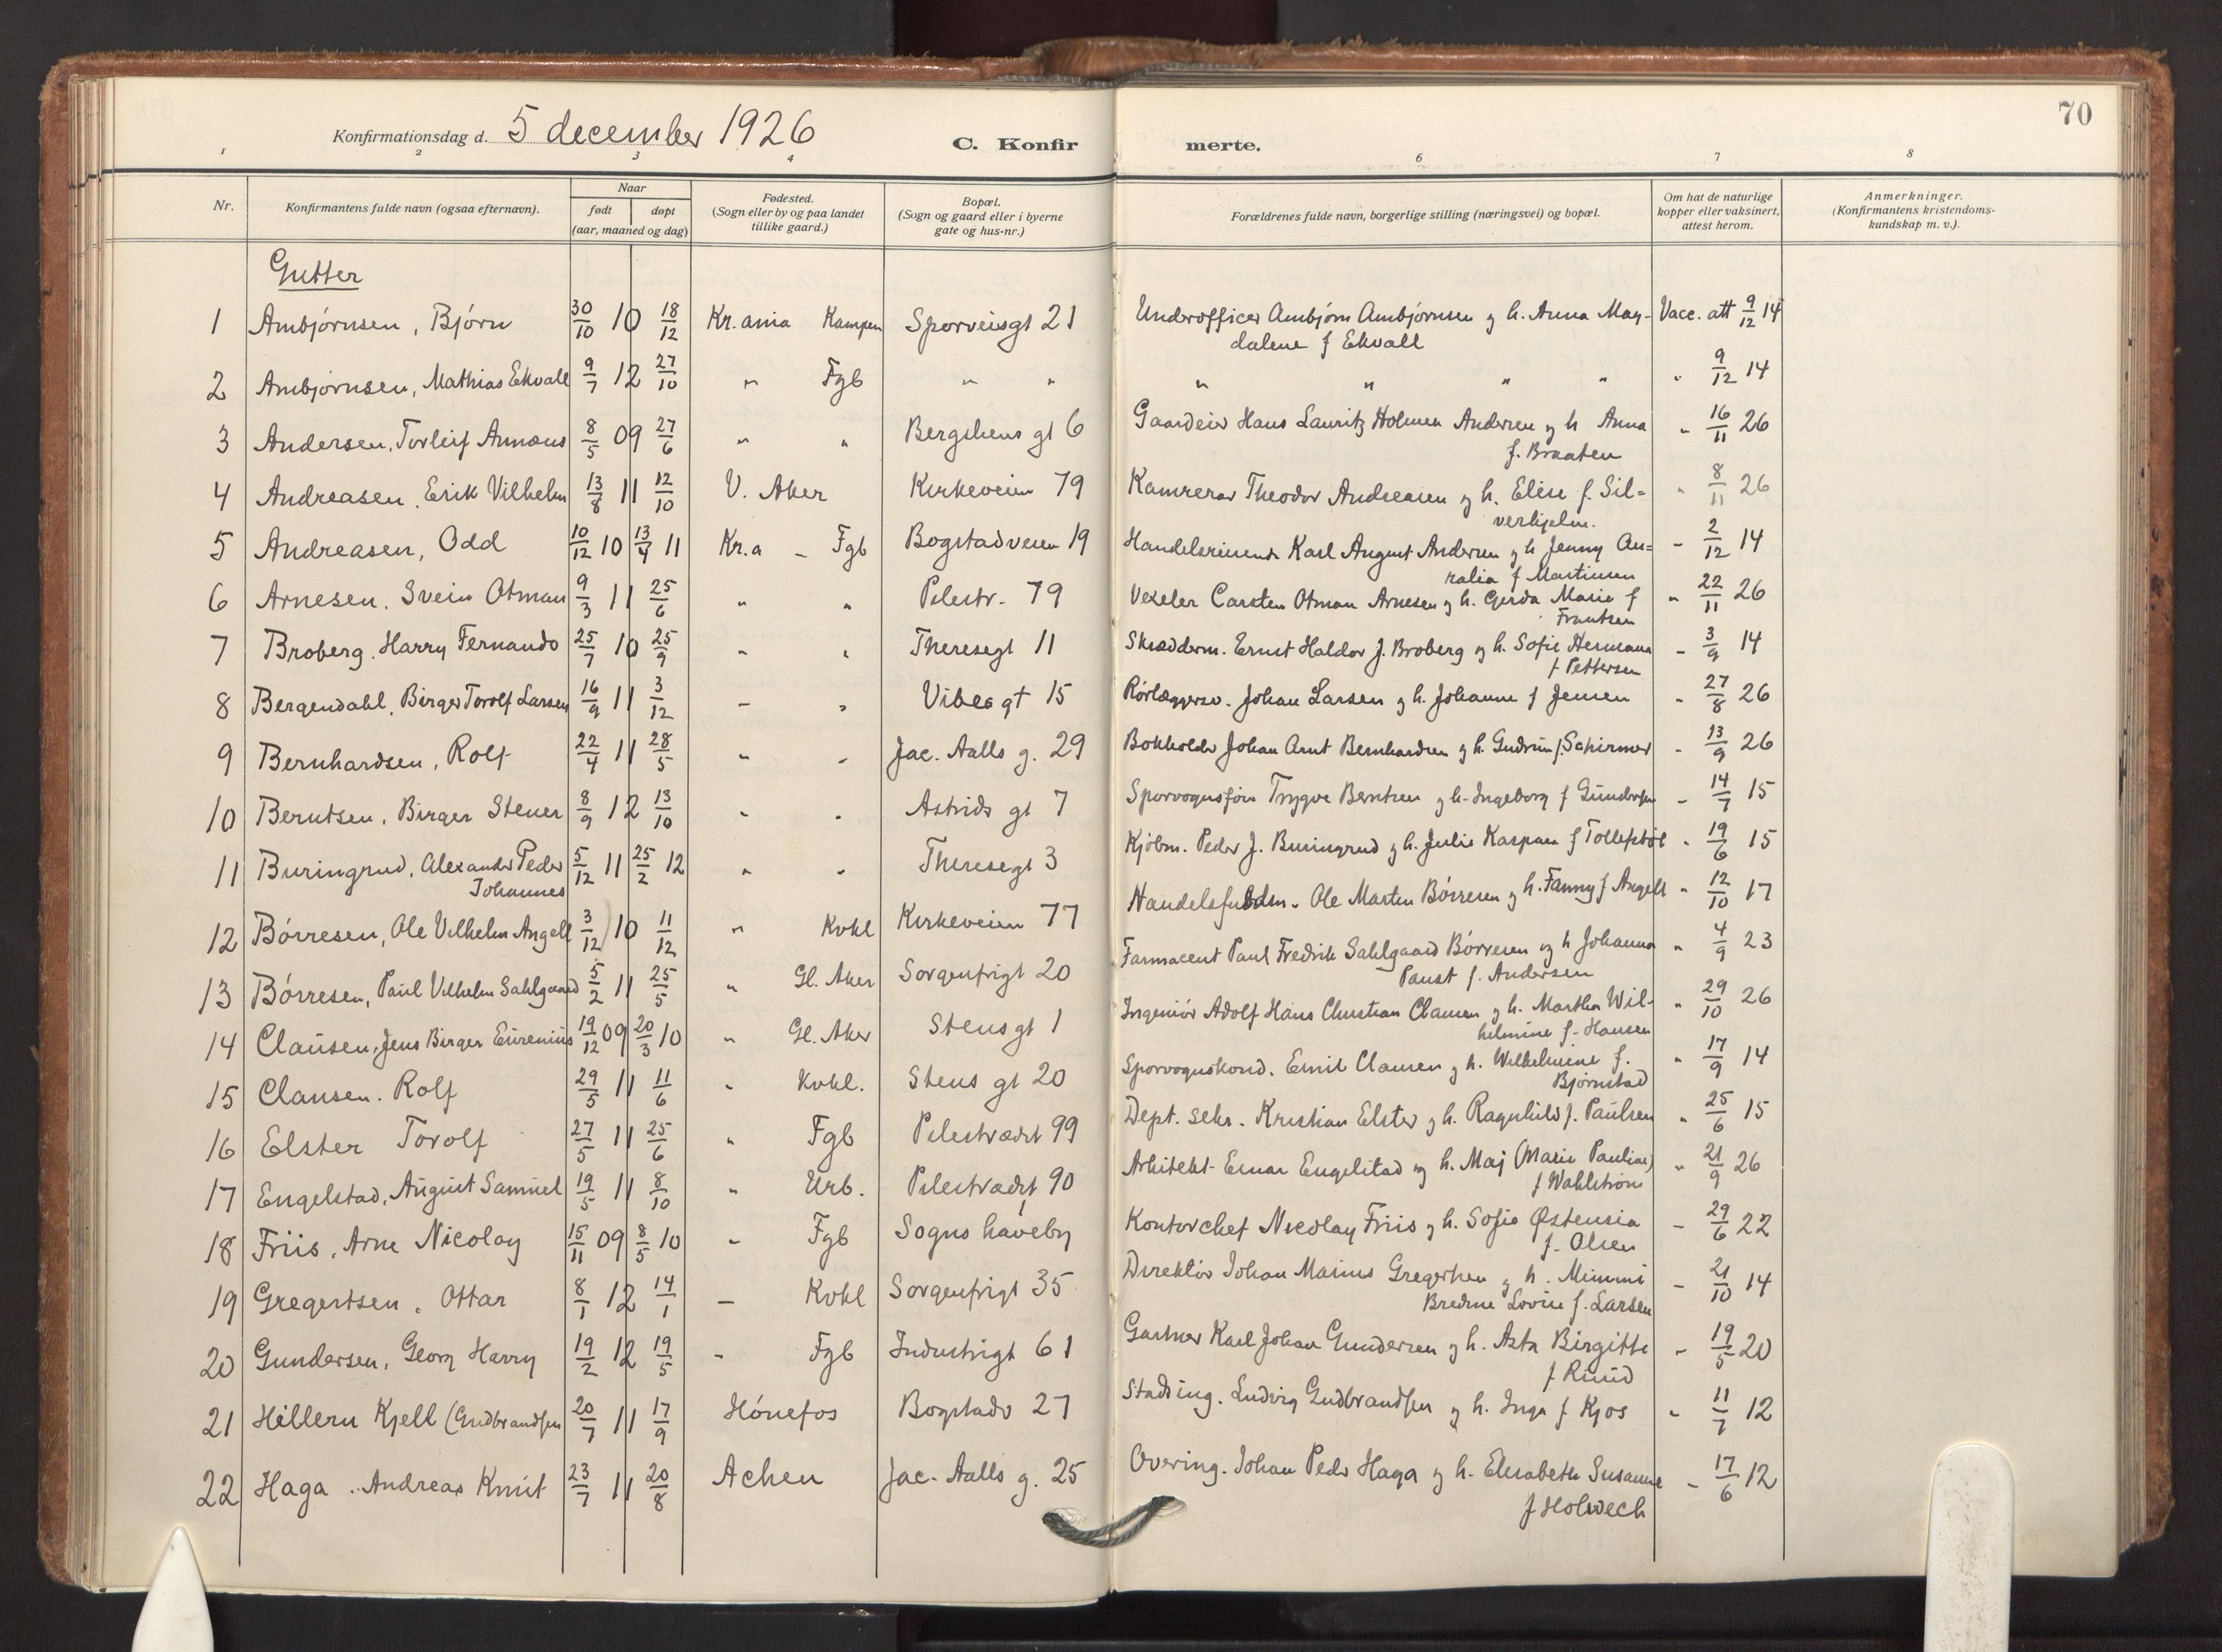 70
Konfirmationsdag d. 5 december 1926 C. Konfir merte.
1 2 3 4 6 7 8
Nr. Konfirmantens fulde navn (ogsaa efternavn). Naar født døpt (aar, maaned og dag) Fødested. (Sogn eller by og paa landet tillike gaard.) Bopæl. (Sogn og gaard eller i byerne gate og hus-nr.) Forældrenes fulde navn, borgerlige stilling (næringsvei) og bopæl. Om hat de naturlige kopper eller vaksinert, attest herom. Anmerkninger. (Konfirmantens kristendoms-kundskap m. v.).
Gutter
1 Ambjørnsen, Bjørn 30/10 10 18/12 Kr.ania Kampen Sporveisgt 21 Underofficer Ambjørn Ambjørnsen og h. Anna Mag- Vacc. att 9/12 14
dalene f Ekvall
2 Ambjørnsen, Mathias Ekvall 9/7 12 27/10 " Fgb " " " " " " " 9/12 14
3 Andersen, Torleif Annæus 8/5 09 27/6 " " Bergsliens gt 6 Gaardeier Hans Lauritz Holmen Andersen og h Anna " 16/11 26
f. Braaten
4 Andreasen, Erik Vilhelm 13/8 11 12/10 V. Aker Kirkeveien 79 Kamrerer Theodor Andreasen og h. Elise f. Sil= " 8/11 26
verhjelm.
5 Andreasen, Odd 10/12 10 13/4 11 Kr.a - Fgb Bogstadveien 19 Karl August Andersen og h Jenny Au= - 2/12 14
ralia f Martinsen
6 Arnesen, Svein Otman 9/3 11 25/6 " " Pilestr. 79 Vexeler Carsten Otman Arnesen og h. Gerda Marie f " 22/11 26
Frantzen
7 Broberg, Harry Fernando 25/7 10 25/9 " " Theresegt 11 Skræderm. Ernst Haldor J. Broberg og h. Sofie Hermana - 3/9 14
f Pettersen
8 Bergendahl, Birger Torolf Larsen 16/9 11 3/12 - " Vibes gt 15 Rørlæggersv. Johan Larsen og h. Johanne f Jensen " 27/8 26
9 Bernhardsen, Rolf 22/4 11 28/5 " " Jac. Aalls g. 29 Bokholder Johan Arnt Bernhardsen og h. Gudrun f. Schirmer - 13/9 26
10 Berntsen, Birger Stener 8/9 12 13/10 " " Astrids gt 7 Sporvognsfører Trygve Berntsen og h. Ingeborg f Gundersen - 14/7 15
11 Buringrud, Alexander Peder 5/12 11 25/2 12 " " Theresegt 3 Kjøbm. Peder J. Buringrud og h. Julie Kaspara f " 19/6 15
Johannes
12 Børresen, Ole Vilhelm Angell 3/12 10 11/12 " Kvhl Kirkeveien 77 Handelsfuldm. Ole Marten Børresen og h. Fanny f Angell " 12/10 17
13 Børresen, Paul Vilhelm Sahlgaard 5/2 11 25/5 " Gl. Aker Sorgenfrigt 20 Farmaceut Paul Fredrik Sahlgaard Børresen og h Johanna " 4/9 23
Faust f. Andersen
14 Clausen, Jens Birger Eurenius 19/12 09 20/3 10 " Gl. Aker Stensgt 1 Ingeniør Adolf Hans Christian Clausen og h. Martha Wil- " 29/10 26
helmine f. Hansen
15 Clausen. Rolf 29/5 11 11/6 " Kvhl. Stens gt 20 Sporvognskond. Emil Clausen og h. Wilhelmine f. " 17/9 14
Bjørnstad
16 Elster Torolf 27/5 11 25/6 " Fgb Pilestrædet 99 Dept. sekr. Kristian Elster og h. Ragnhild f. Paulsen " 25/6 15
17 Engelstad, August Samuel 19/5 11 8/10 " Urb. Pilestrædet 90 Arkitekt Einar Engelstad og h. Maj (Marie Pauline) " 21/9 26
f Wahlstrøm
18 Friis, Arne Nicolay 15/11 09 8/5 10 " Fgb Sogns haveby Kontorchef Nicolay Friis og h. Sofie Østensia - 29/6 22
f. Olsen
19 Gregertsen, Ottar 8/1 12 14/1 - Kvhl Sorgenfrigt 35 Direktør Johan Marius Gregertsen og h. Mimmi - 21/10 14
Bredine Lovise f. Larsen
20 Gundersen, Georg Harry 19/2 12 19/5 - Fgb Industrigt 61 Gartner Karl Johan Gundersen og h. Asta Birgitte - 19/5 20
f Ruud
21 Hillern Kjell (Gudbrandsen 20/7 11 17/9 Hønefos Bogstadv 27 Stadsing. Ludvig Gudbrandsen og h. Inga f Kjos " 11/7 12
22 Haga, Andreas Knut 23/7 11 20/8 Achen Jac. Aalls g. 25 Overing. Johan Peder Haga og h. Elisabeth Susanne - 17/6 12
f Holwech